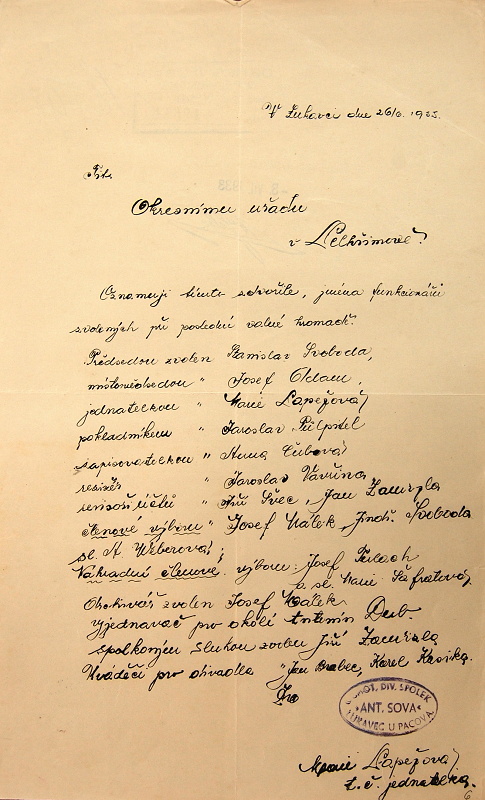 V Lukavci dne 26/6. 1933.
P.t.
Okresnímu úřadu
v Pelhřimově.
Oznamuji tímto zdvořile, jména funkcionářů
zvolených při poslední valné hromadě.
Předsedou zvolen Stanislav Svoboda,
místopředsedou " Josef Adam,
jednatelkou " Marie Lapešová,
pokladníkem " Jaroslav
zapisovatelkou " Anna Čubová
režisér " Jaroslav Vavřina
revisoři účtů " Jiří Švec, Jan Zamrzla
Členové výboru " Josef Hálek, Jindř. Svoboda
sl. A. Wzberová,
Náhradní členové výboru: Josef
a sl. Marie
zvolen Josef Hálek
Vyjednavač pro okolí Antonín Dub.
Spolkovým sluhou zvolen Jiří Zamrzla
Uváděči pro divadla " Jan Brabec, Karel
Za
OCHOT. DIV. SPOLEK
"ANT. SOVA"
LUKAVEC U PACOVA.
Marie Lapešová
t. č. jednatelka.
6